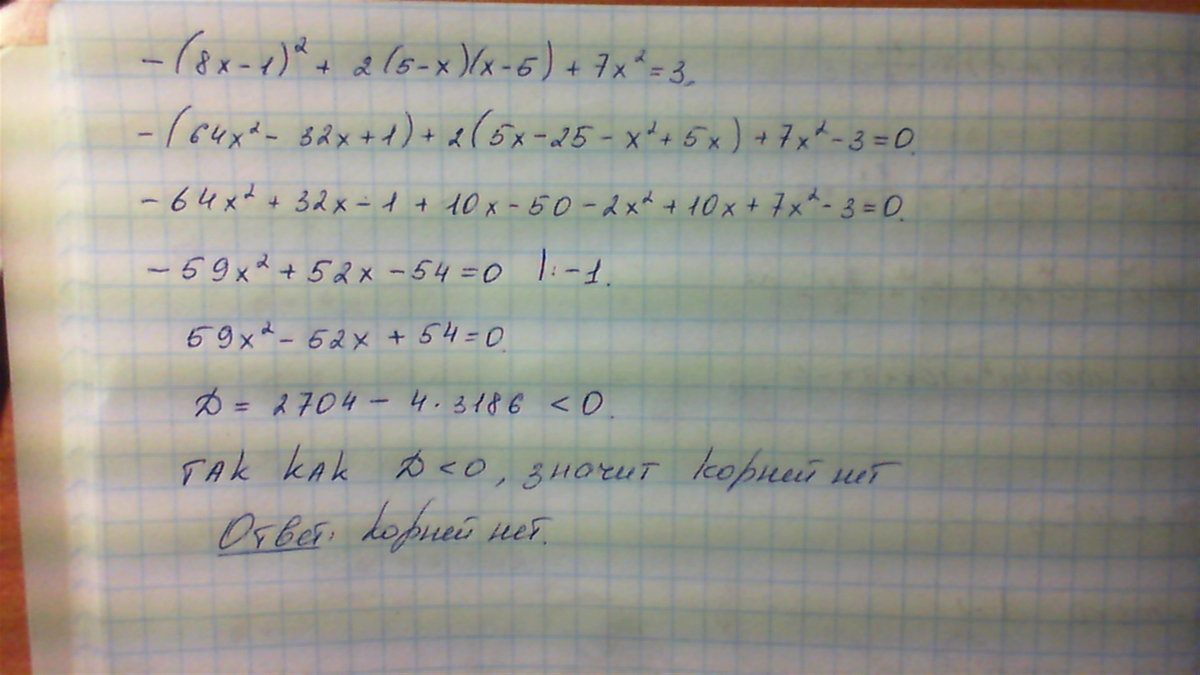 -(8x-1)² + 2(5-x)(x-5) + 7x² = 3.
-(64x² - 32x + 1) + 2(5x - 25 - x² + 5x) + 7x² - 3 = 0.
-64x² + 32x - 1 + 10x - 50 - 2x² + 10x + 7x² - 3 = 0.
-59x² + 52x - 54 = 0 |: -1.
59x² - 52x + 54 = 0.
D = 2704 - 4·3186 < 0.
так как D < 0, значит корней нет
Ответ: корней нет.